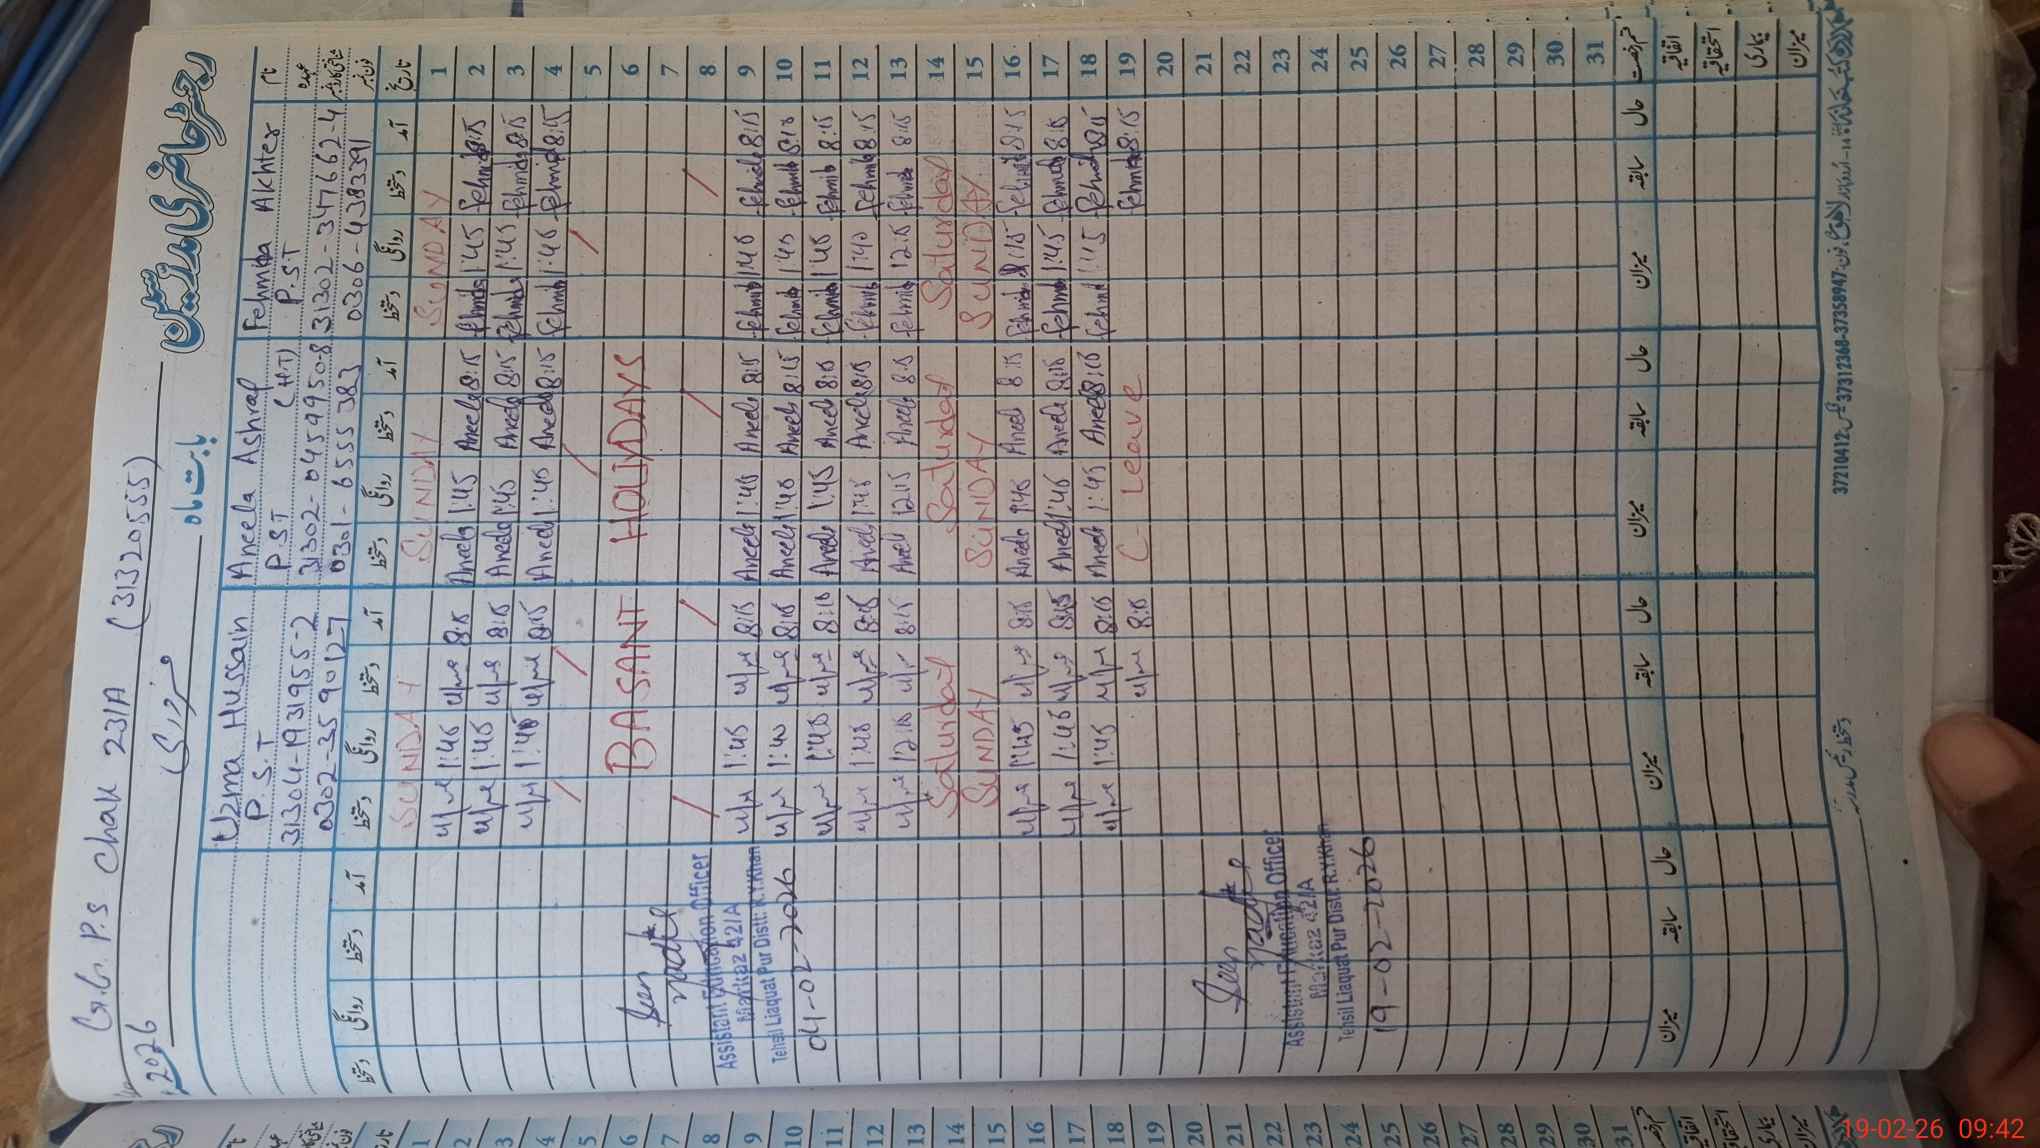 رجسٹر حاضری مدرسین
G.G.P.S Chak 231A (31320555)
بابت ماہ فروری 2026
نام Fehmida Akhter Aneela Ashraf Uzma Hussain
عہدہ P.S.T P.S.T (H.T) P.S.T
شناختی کارڈ نمبر 31302-3477662-4 31302-0459950-8 31304-1931955-2
فون نمبر 0306-4383391 0301-6555383 0302-3590127
تاریخ آمد دستخط روانگی دستخط آمد دستخط روانگی دستخط آمد دستخط روانگی دستخط آمد دستخط روانگی دستخط
1 SUNDAY SUNDAY SUNDAY
2 8:15 Fehmida 1:45 Fehmida 8:15 Aneela 1:45 Aneela 8:15 1:45
3 8:15 Fehmida 1:45 Fehmida 8:15 Aneela 1:45 Aneela 8:15 1:45
4 8:15 Fehmida 1:45 Fehmida 8:15 Aneela 1:45 Aneela 8:15 1:45
5
6 BASANT HOLIDAYS
7
8
9 8:15 Fehmida 1:45 Fehmida 8:15 Aneela 1:45 Aneela 8:15 1:45
10 8:15 Fehmida 1:45 Fehmida 8:15 Aneela 1:45 Aneela 8:15 1:45
11 8:15 Fehmida 1:45 Fehmida 8:15 Aneela 1:45 Aneela 8:15 1:45
12 8:15 Fehmida 1:45 Fehmida 8:15 Aneela 1:45 Aneela 8:15 1:45
13 8:15 Fehmida 12:15 Fehmida 8:15 Aneela 12:15 Aneela 8:15 12:15
14 Saturday Saturday Saturday
15 SUNDAY SUNDAY SUNDAY
16 8:15 Fehmida Fehmida 8:15 Aneela 1:45 Aneela 8:15 1:45
17 8:15 Fehmida 1:45 Fehmida 8:15 Aneela 1:45 Aneela 8:15 1:45
18 8:15 Fehmida 1:45 Fehmida 8:15 Aneela 1:45 Aneela 8:15 1:45
19 8:15 Fehmida C- Leave 8:15
20
21
22
23
24
25
26
27
28
29
30
31
حال سابقہ میزان حال سابقہ میزان حال سابقہ میزان حال سابقہ میزان
اتفاقیہ
استحقاقیہ
بیماری
میزان
Seen
Assistant Education Officer
Markaz 42/A
Tehsil Liaquat Pur Distt: R.Y.Khan
04-02-2026
Seen
Assistant Education Officer
Markaz 42/A
Tehsil Liaquat Pur Distt: R.Y.Khan
19-02-2026
37210412 37312368-37358947
1
2
3
4
5
6
7
8
9
10
11
12
13
14
15
16
17
18
19
20
21
22
23
24
25
26
27
28
29
30
31
19-02-26 09:42